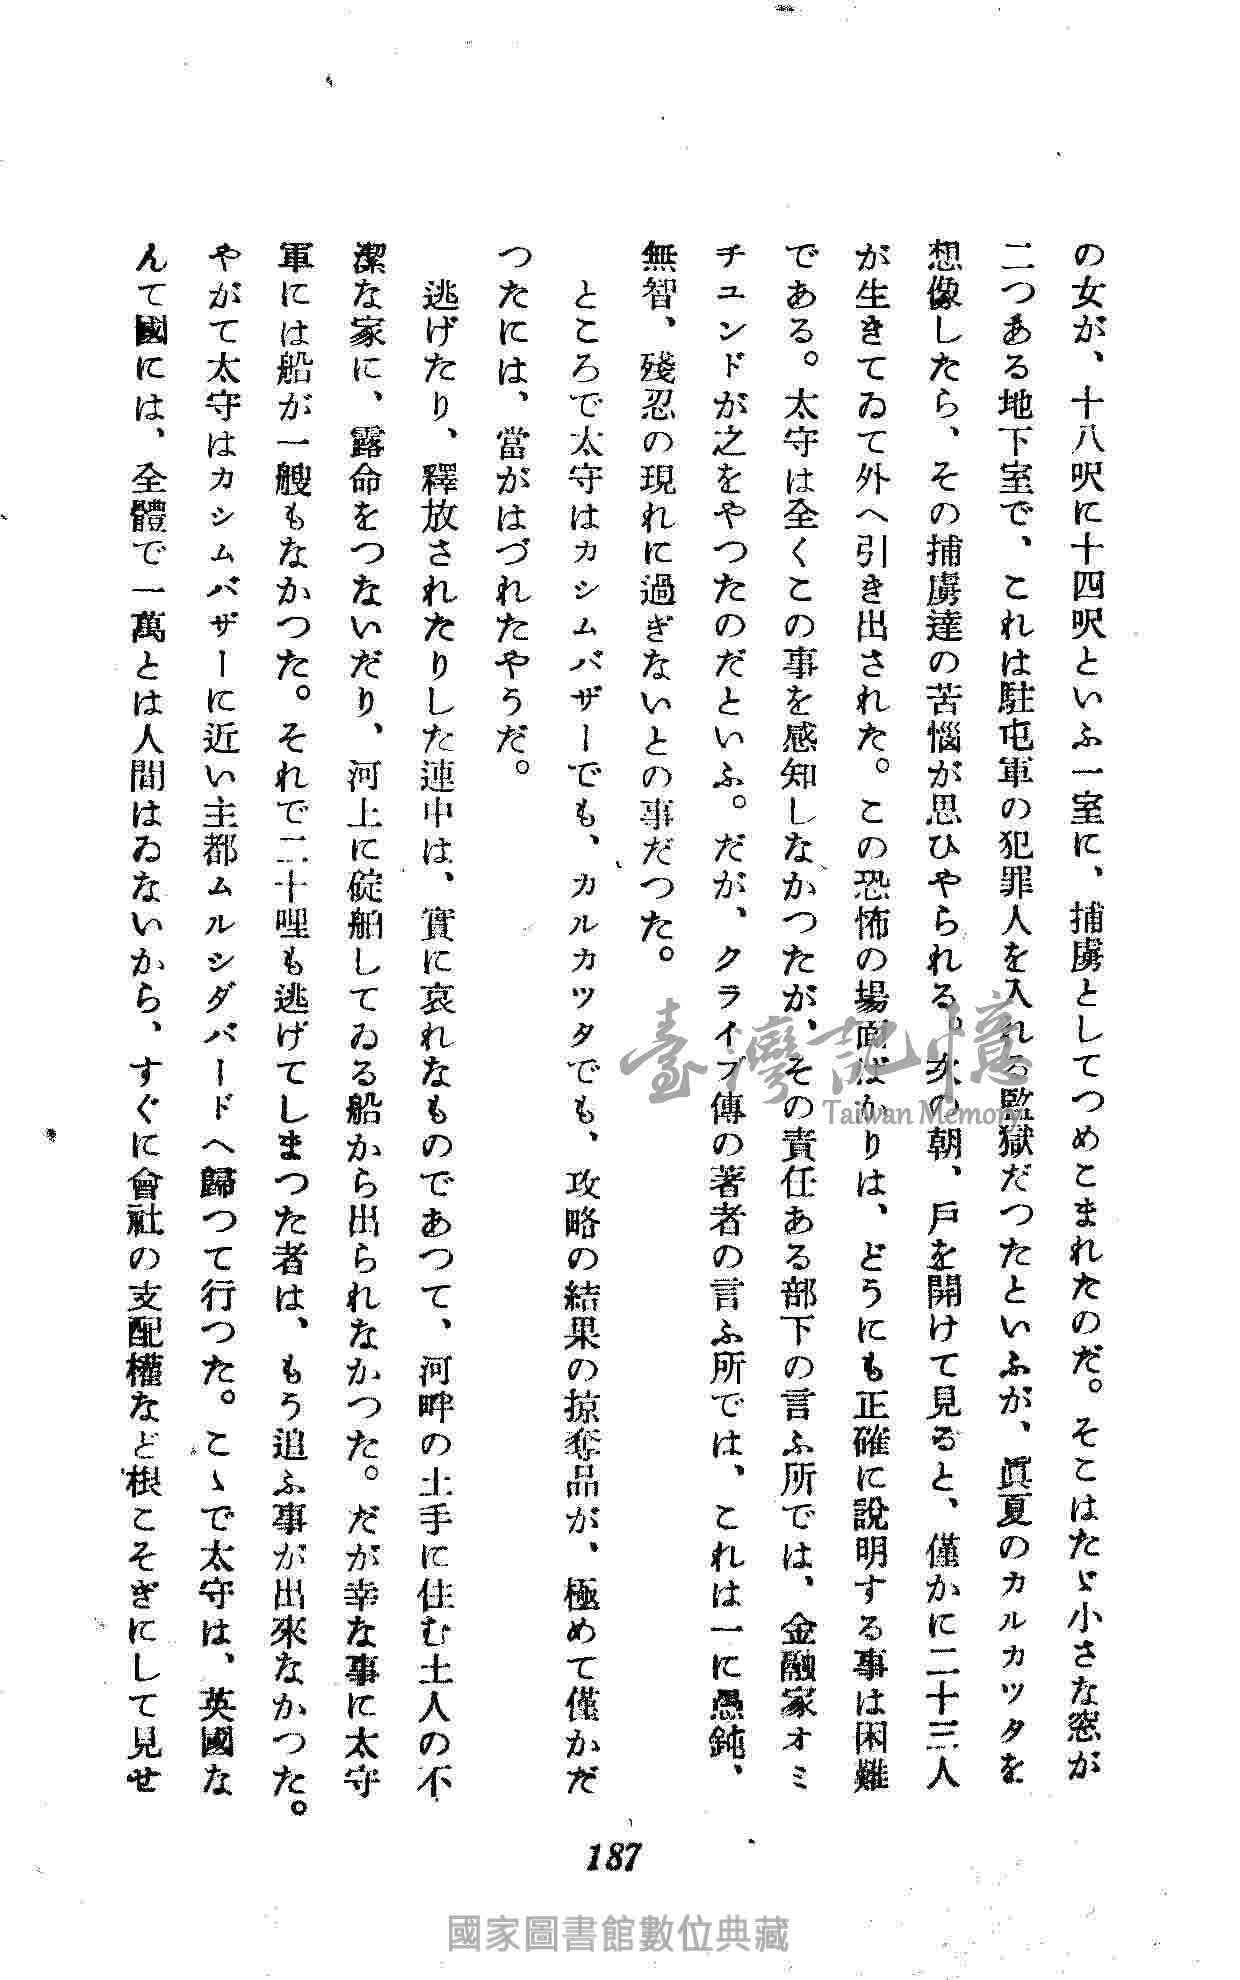 の女が、十八呎に十四呎といふ一室に、捕虜としてつめこまれたのだ。そこはたゞ小さな窓が
二つある地下室で、これは駐屯軍の犯罪人を入れる監獄だつたといふが、眞夏のカルカツタを
想像したら、その捕虜達の苦惱が思ひやられる。次の朝、戸を開けて見ると、僅かに二十三人
が生きてゐて外へ引き出された。この恐怖の場面ばかりは、どうにも正確に說明する事は困難
である。太守は全くこの事を感知しなかつたが、その責任ある部下の言ふ所では、金融家オミ
チユンドが之をやつたのだといふ。だが、クライブ傳の著者の言ふ所では、これは一に愚鈍、
無智、殘忍の現れに過ぎないとの事だつた。
ところで太守はカシムバザーでも、カルカツタでも、攻略の結果の掠奪品が、極めて僅かだ
つたには、當がはづれたやうだ。
逃げたり、釋放されたりした連中は、實に哀れなものであつて、河畔の土手に住む土人の不
潔な家に、露命をつないだり、河上に碇舶してゐる船から出られなかつた。だが幸な事に太守
軍には船が一艘もなかつた。それで二十哩も逃げてしまつた者は、もう追ふ事が出來なかつた。
やがて太守はカシムバザーに近い主都ムルシダバードへ歸つて行つた。こゝで太守は、英國な
んて國には、全體で一萬とは人間はゐないから、すぐに會社の支配權など根こそぎにして見せ
187
臺灣記憶
Taiwan Memory
國家圖書館數位典藏